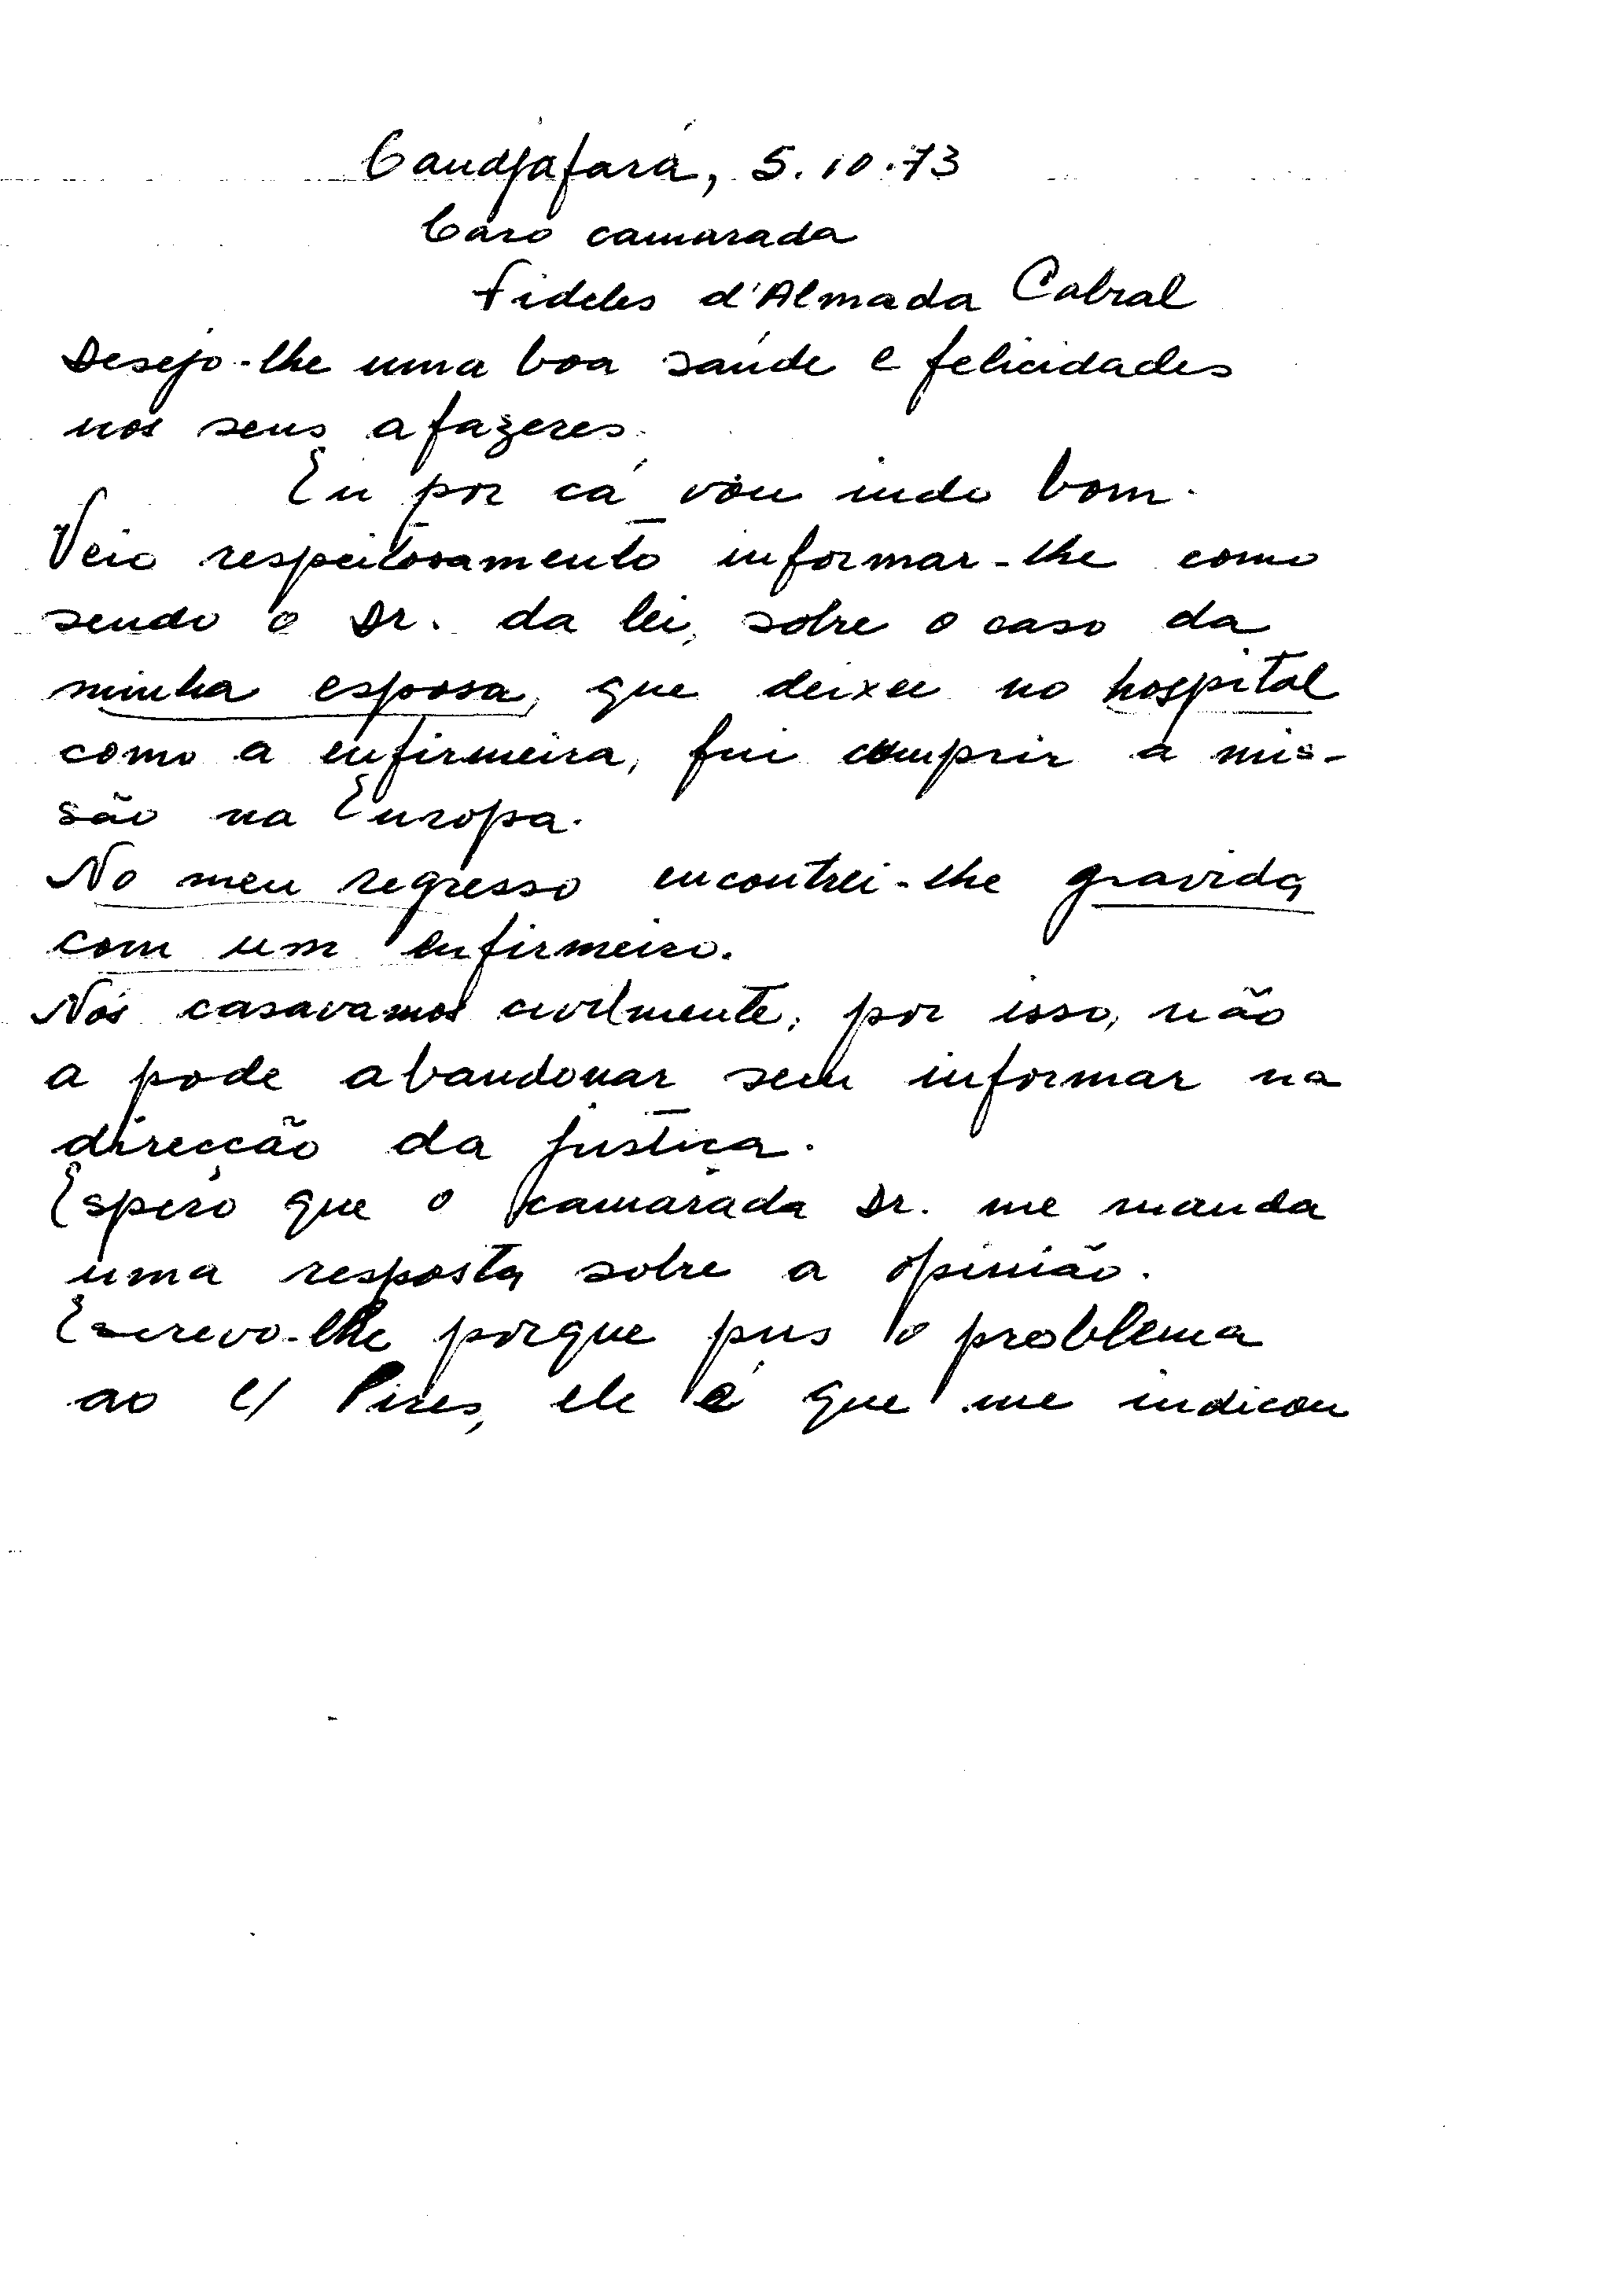 Candjafará, 5.10.73
Caro camarada
Fideles d'Almada Cabral
Desejo-lhe uma boa saúde e felicidades
nos seus afazeres.
Eu por cá vou indo bom.
Veio respeitosamento informar-lhe como
sendo o Dr. da lei, sobre o caso da
minha esposa, que deixei no hospital
como a enfirmeira, fui cumprir a mis-
são na Europa.
No meu regresso encontrei-lhe gravida
com um enfirmeiro.
Nós casavamos civilmente, por isso, não
a pode abandonar sem informar na
direcção da justiça.
Espero que o camarada Dr. me manda
uma resposta sobre a opinião.
Escrevo-lhe porque pus o problema
ao C/ Pires, ele é que me indicou